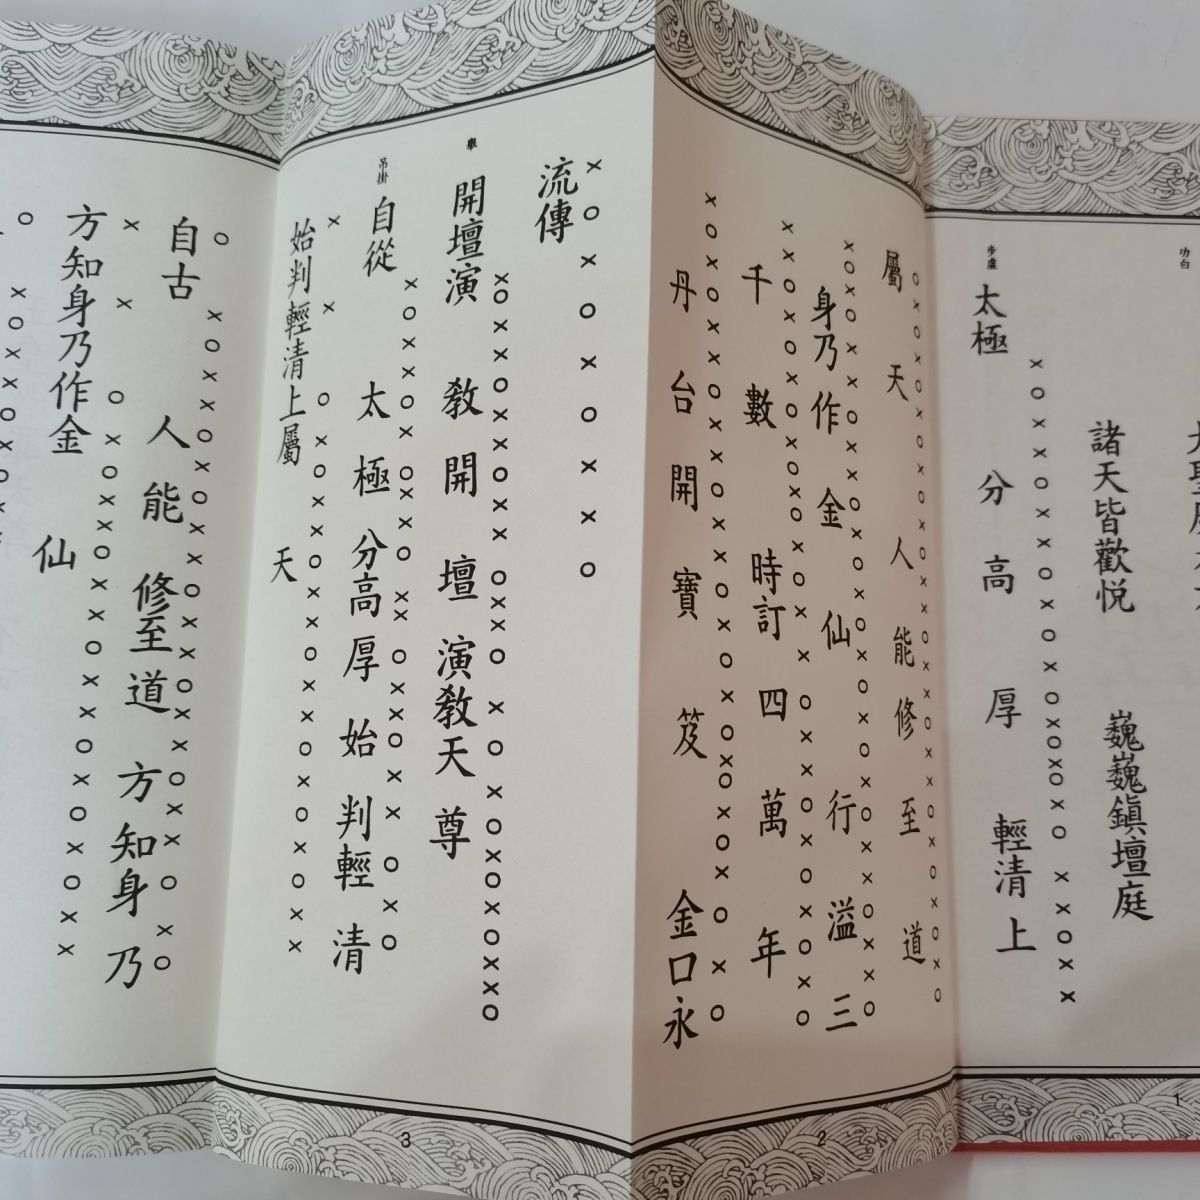 功白
諸天皆歡悅 巍巍鎮壇庭
步虛 太極 分高厚 輕清上
屬天 人能修至道
身乃作金仙 行溢三
千數 時訂四萬年
丹台開寶笈 金口永
流傳
舉 開壇演教開壇演教天尊
吊掛 自從太極分高厚始判輕清
始判輕清上屬天
自古人能修至道方知身乃
方知身乃作金仙
1
2
3